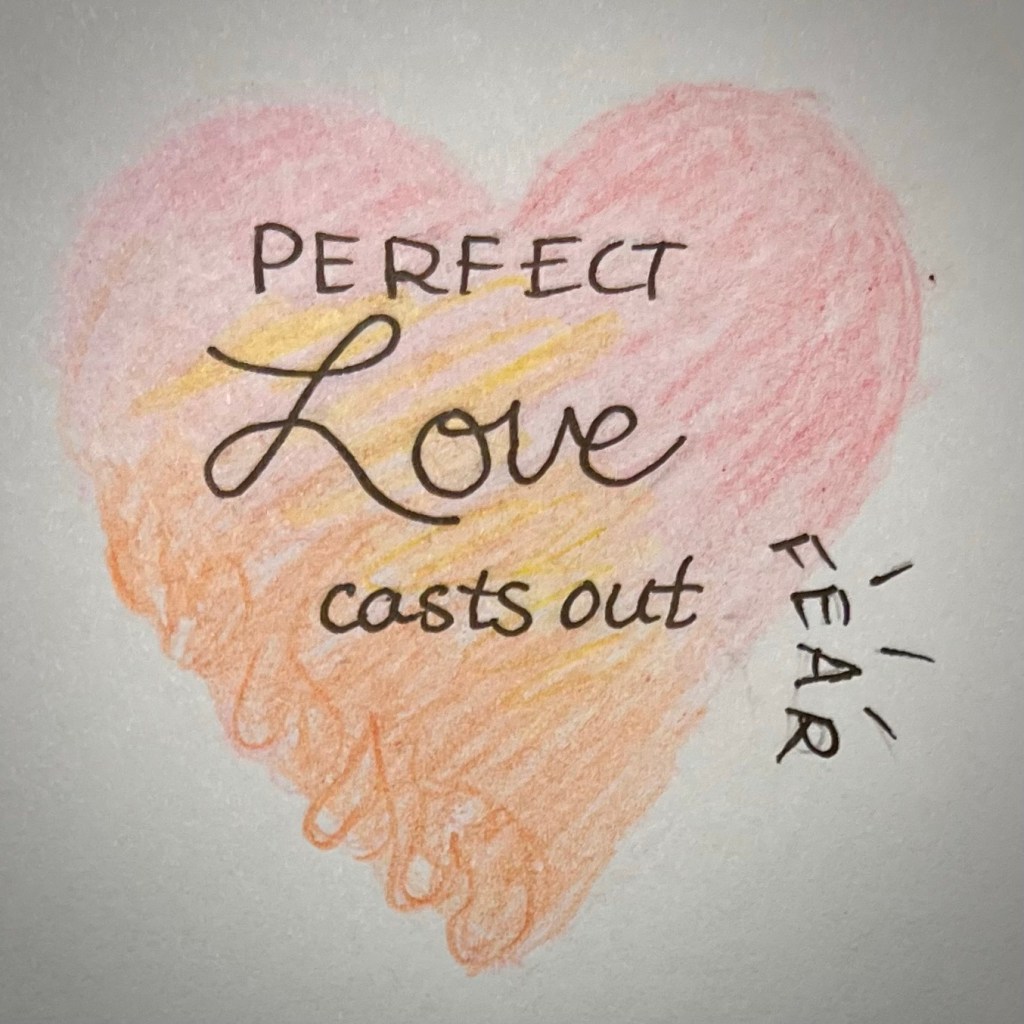 PERFECT
Love
casts out
FEAR